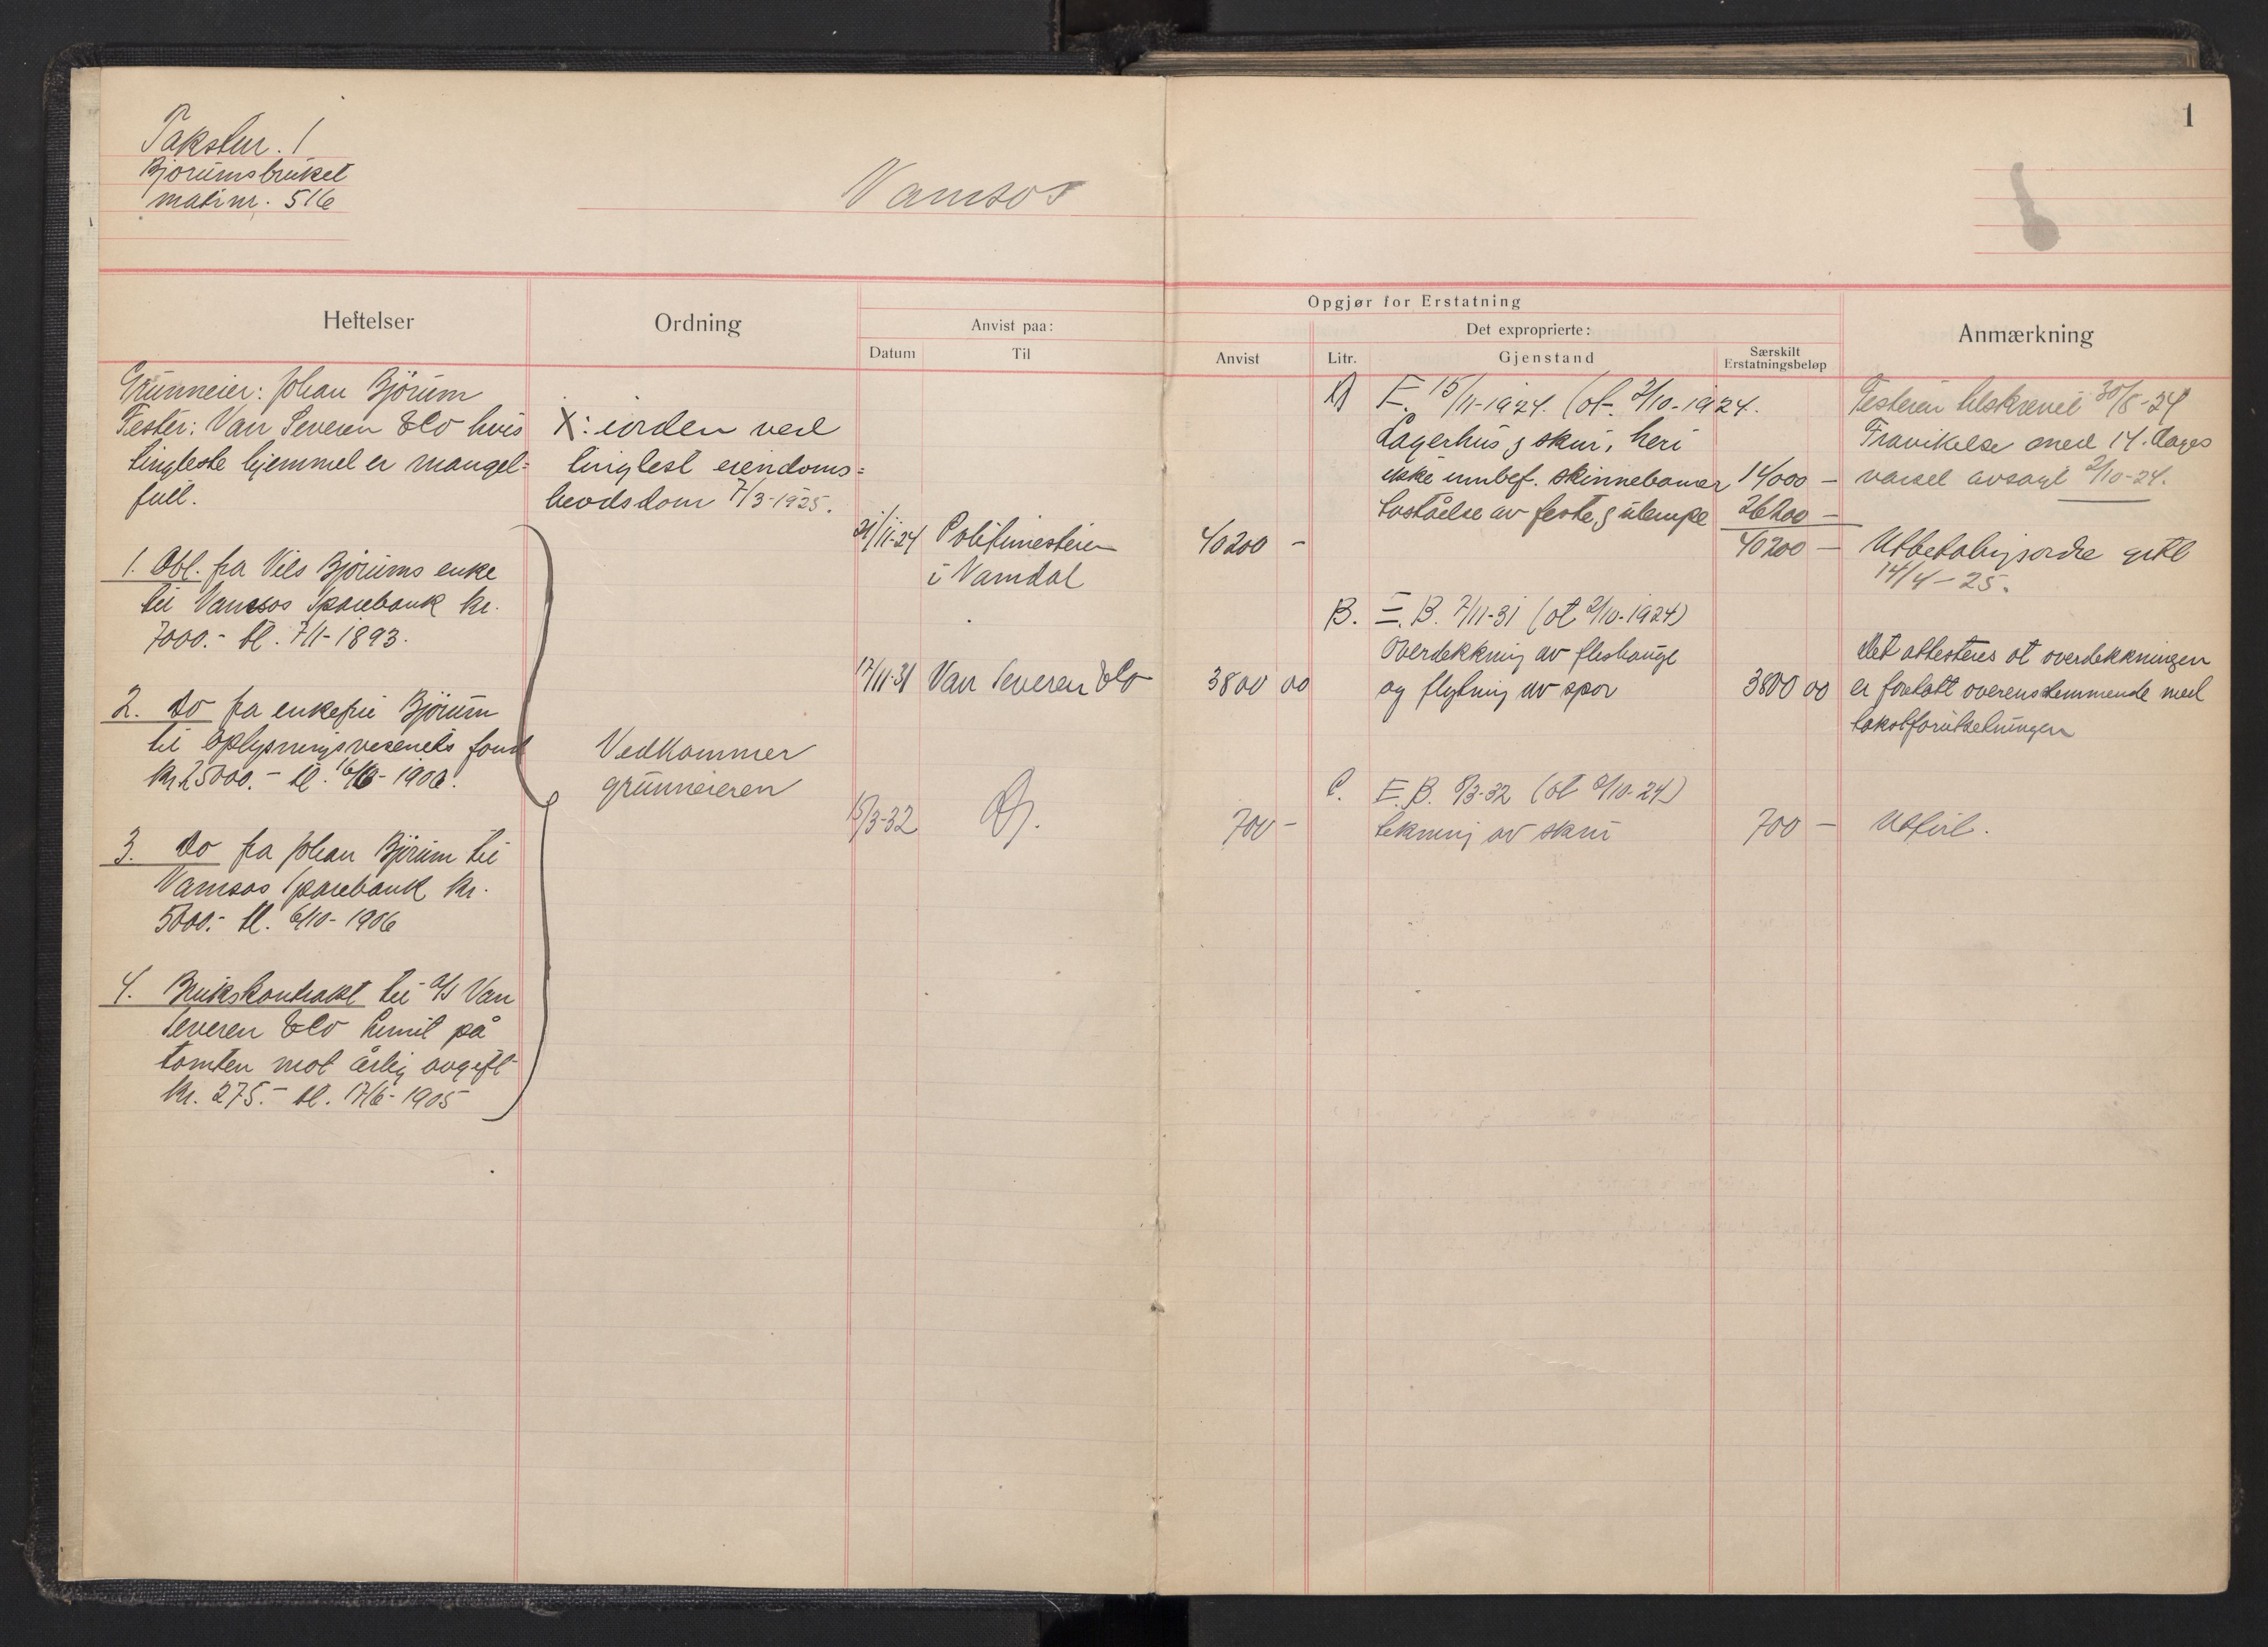 1
Takstnr. 1
Bjørumsbruket
matr nr. 516
Namsos
Heftelser
Ordning
Opgjør for Erstatning
Anvist paa:
Datum
Til
Anvist
Det exproprierte:
Litr.
Gjenstand
Særskilt
Erstatningsbeløp
Anmærkning
Grunneier: Johan Bjørum
Fester: Van Severen & Co hvis
tingleste hjemmel er mangel=
full.
1. Obl. fra Nils Bjørums enke
til Namsos Sparebank kr.
7000.- tl. 7/1-1893.
2. Do fra enkefru Bjørum
til oplysningsvesenets fond
kr 25000.- tl. 16/6-1900.
3. Do fra Johan Bjørum til
Namsos Sparebank kr.
5000.- tl. 6/10-1906
4. Brukskontrakt til A/S Van
Severen & Co Limit på
tomten mot årlig avgift
kr. 275.- tl. 17/6-1905
X: iorden ved
tinglest eiendoms=
hevdsdom 7/3-1925.
Vedkommer
grunneieren
21/11-24 Politimesteren
i Namdal
17/11-31 Van Severen & Co
15/3-32
40200 -
3800 00
700 -
A E. 15/11-1924. (ot. 2/10-1924.
Lagerhus & skur, heri
ikke innbef. skinnebaner 14000 -
Avståelse av feste & ulempe 26200 -
40200 -
B. E. B. 7/11-31 (ot 2/10-1924)
Overdekkning av flishauge
og flytning av spor 3800 00
C. E. B. 8/3-32 (ot 2/10-24)
tekning av skur 700 -
Festeren tilskrevet 30/8-24
Fravikelse med 14. dages
varsel avsagt 2/10-24.
Utbetalingsordre gitt
14/4-25.
Det attesteres at overdekkningen
er foretatt overensstemmende med
takstforutsetningen
Utført.